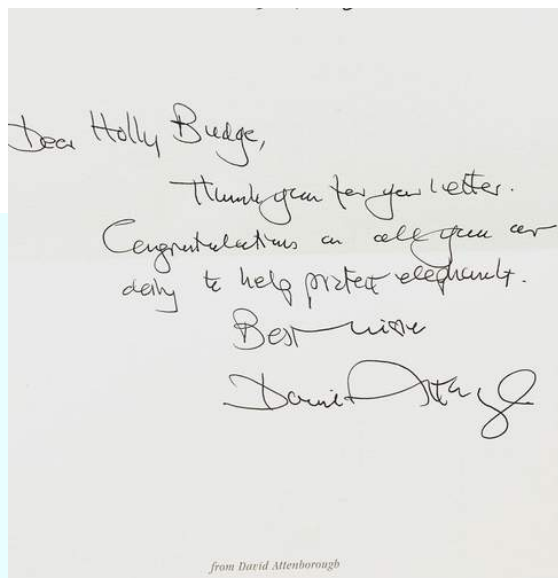 Dear Holly Budge,
Thank you for your letter.
Congratulations on all you are
doing to help protect elephants.
Best wishes
David Attenborough
from David Attenborough